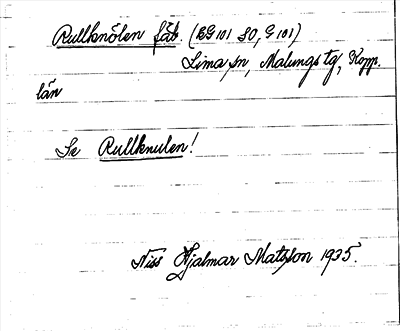 Rullknölen fäb (BG 101 SO, G 101)
Lima sn, Malungs tg, Kopp.
län
Se Rullknulen!
Niss Hjalmar Matsson 1935.